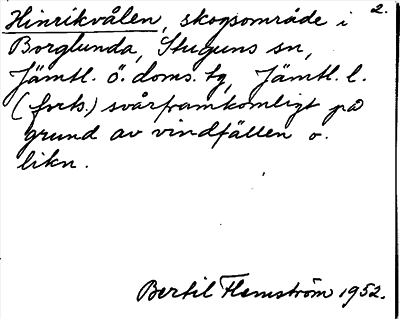 Hinrikvålen, skogsområde i 2.
Borglunda, Stuguns sn,
Jämtl. ö. doms. tg, Jämtl. l.
(forts.) svårframkomligt på
grund av vindfällen o.
likn.
Bertil Flemström 1952.